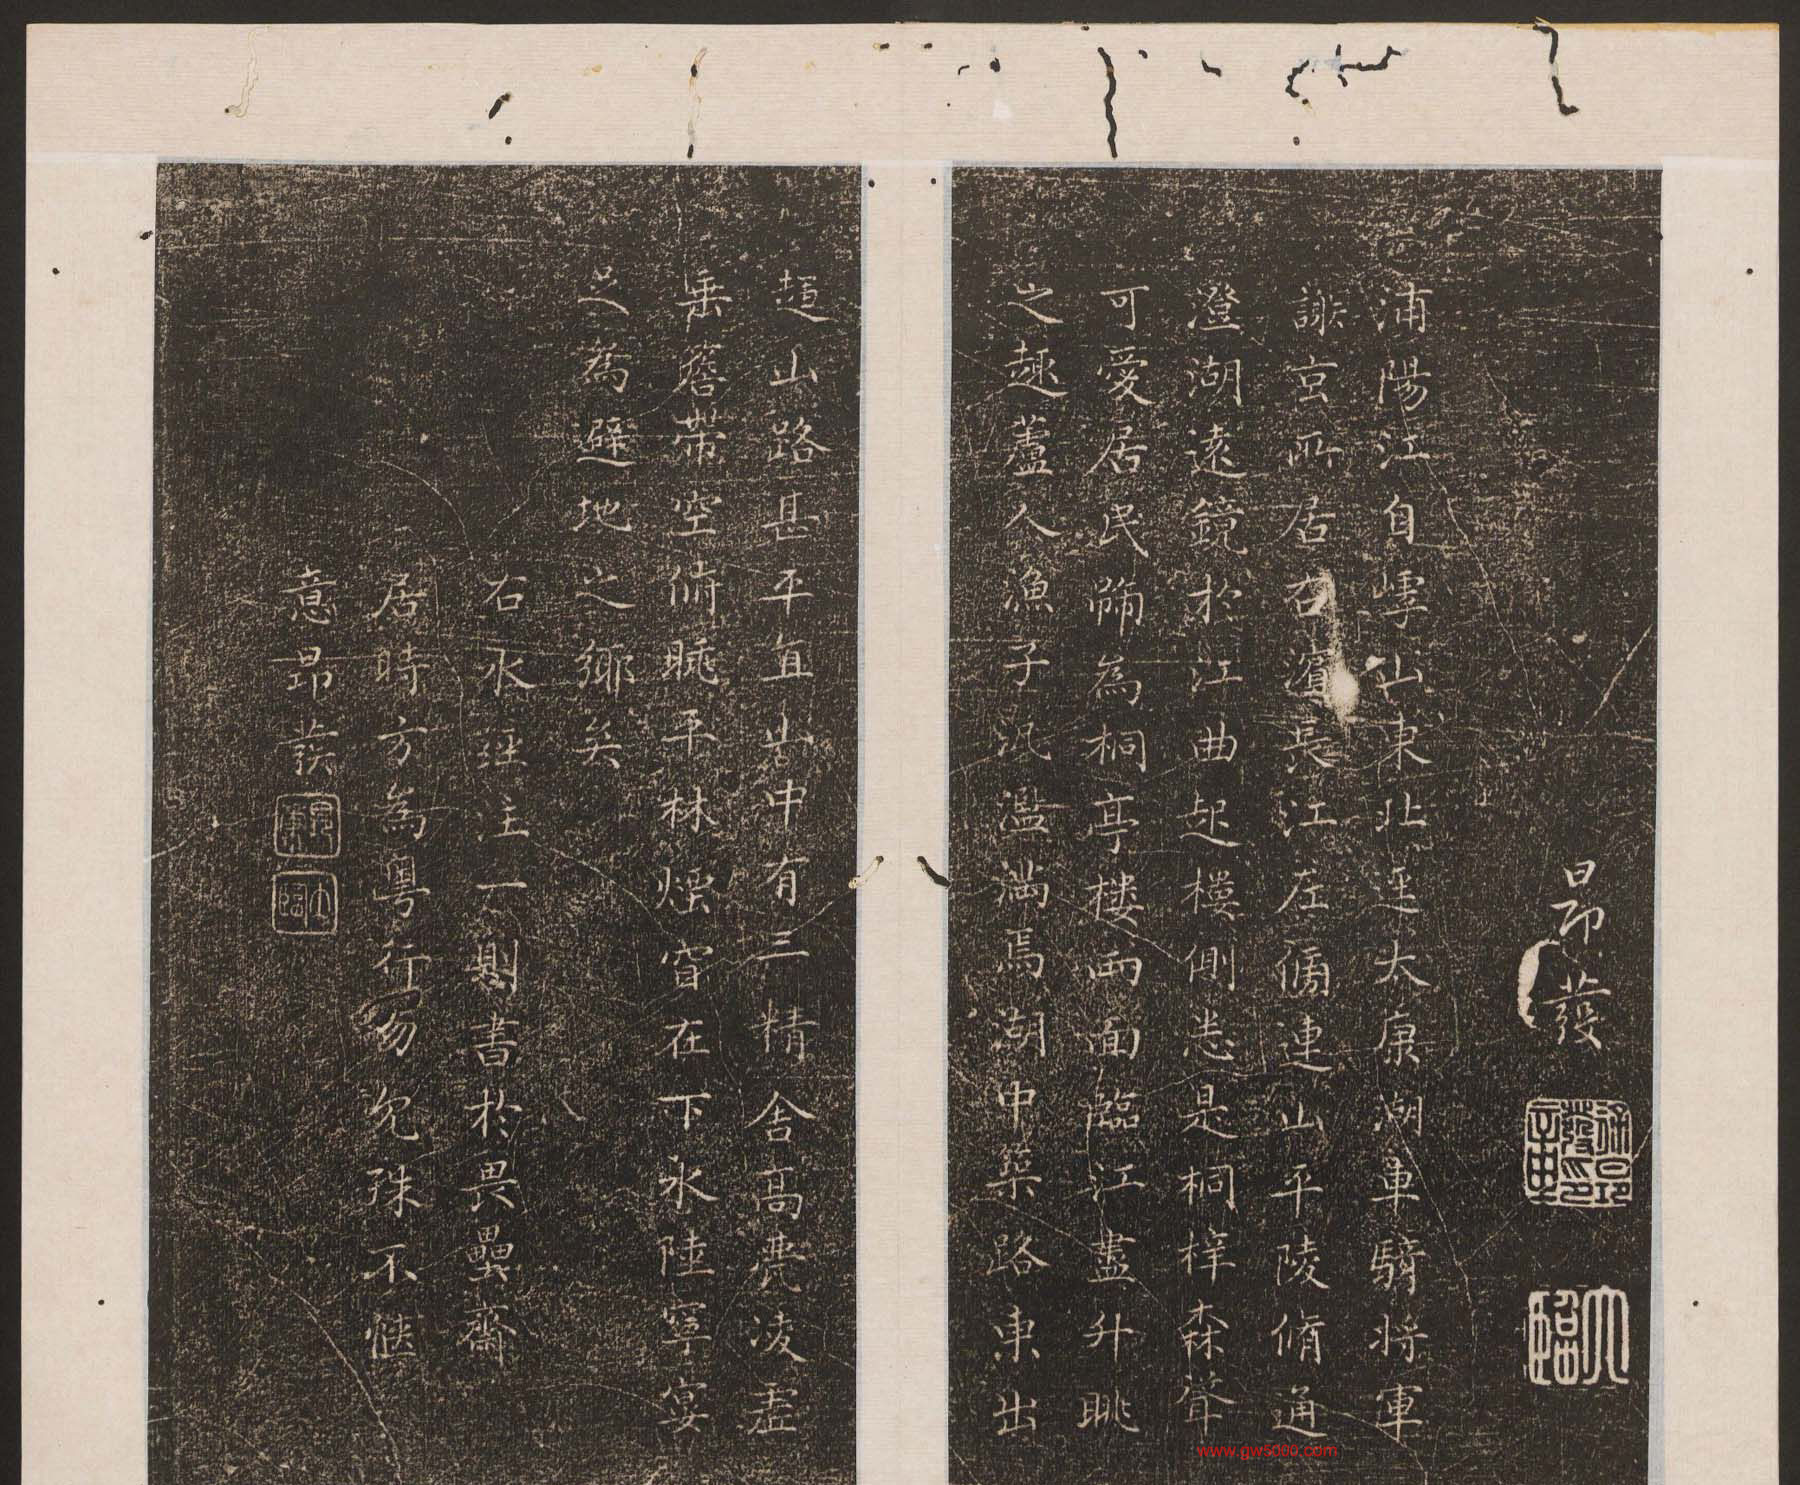 昂發
徐昂發印
大臨
浦陽江自嶀山東北逕太康湖車騎將軍
謝玄所居右濱長江左傍連山平陵脩通
澄湖遠鏡於江曲起樓樓側悉是桐梓森聳
可愛居民號為桐亭樓兩面臨江盡升眺
之趣蘆人漁子汎濫滿焉湖中築路東出
趨山路甚平直山中有三精舍高甍凌虛
垂簷帶空俯眺平林煙杳在下水陸寧宴
足為避地之鄉矣
右水經注一則書於畏壘齋
居時方為粵行匆匆殊不愜
意昂發
大臨
www.gw5000.com